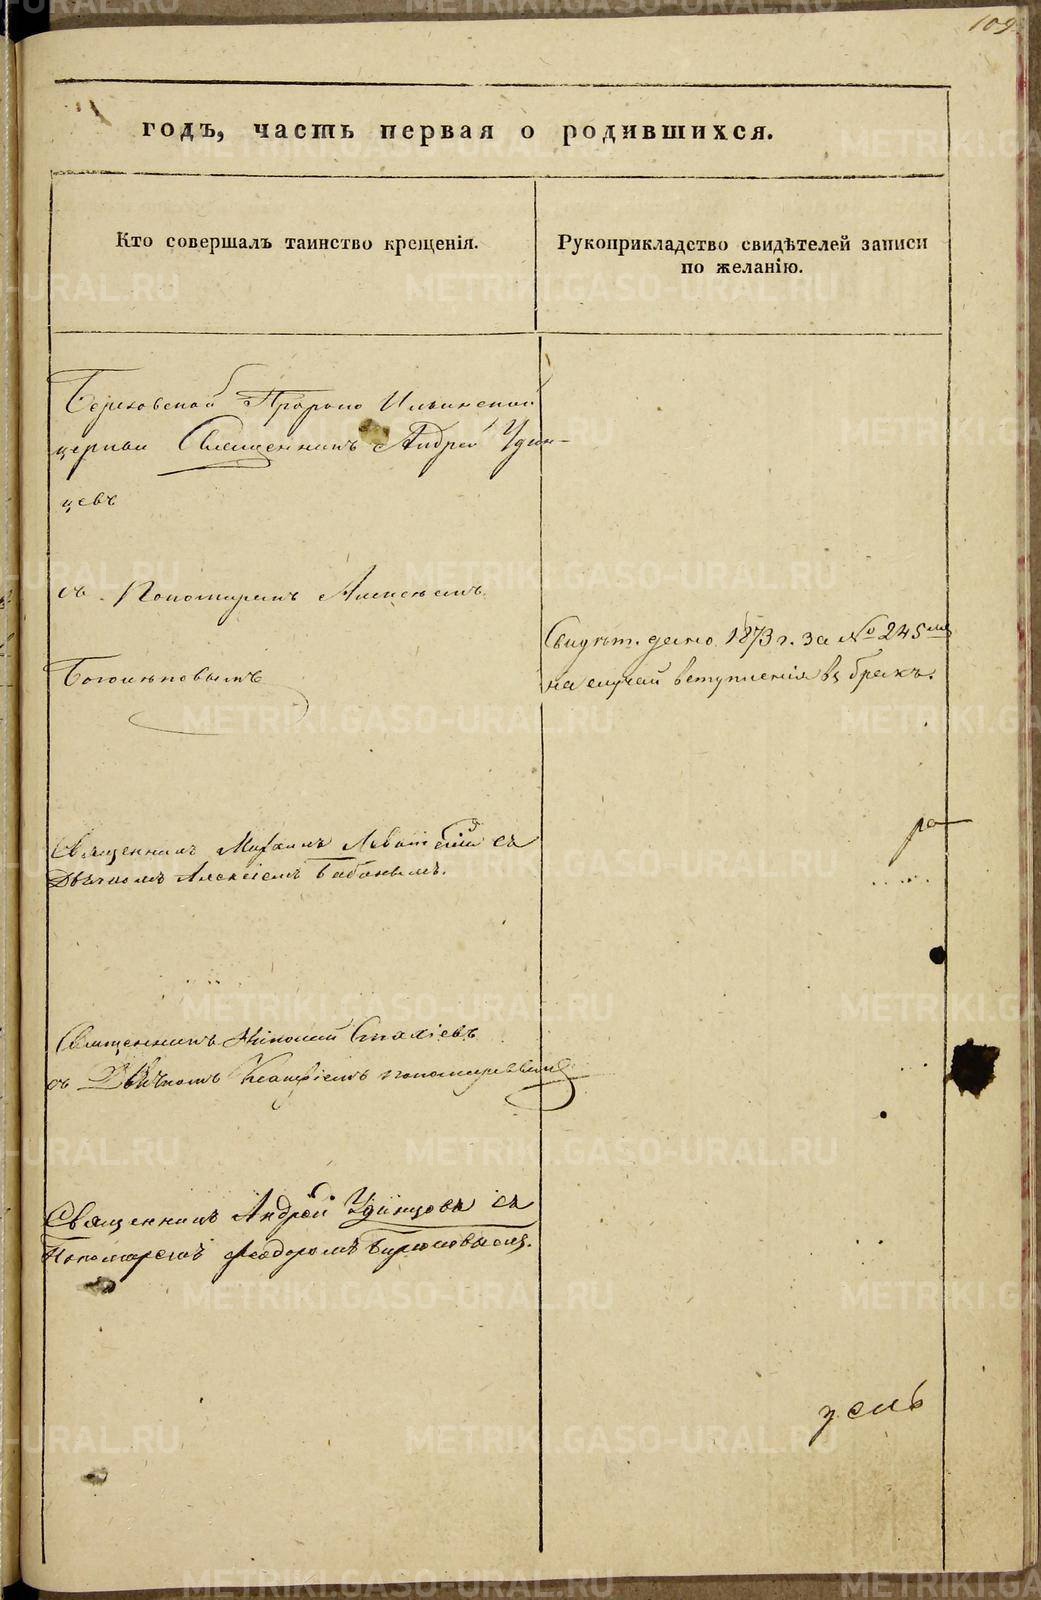 109
годъ, часть первая о родившихся.
Кто совершалъ таинство крещенія.
Рукоприкладство свидѣтелей записи
по желанію.
Пророко Ильинской
церкви Священникъ Андрей Удин-
цевъ
съ Пономаремъ Алексѣемъ
Боголѣповымъ
Свидѣт. дано 1873 г. за № 245
на случай вступленія въ бракъ.
Священникъ Михаилъ съ
Дьячкомъ Алексіемъ Бабинымъ.
ра
Священникъ Николай
съ Дьячкомъ Пономаревымъ
Священникъ Андрей Удинцовъ съ
Пономаремъ Феодоромъ Бирюковымъ.
METRIKI.GASO-URAL.RU